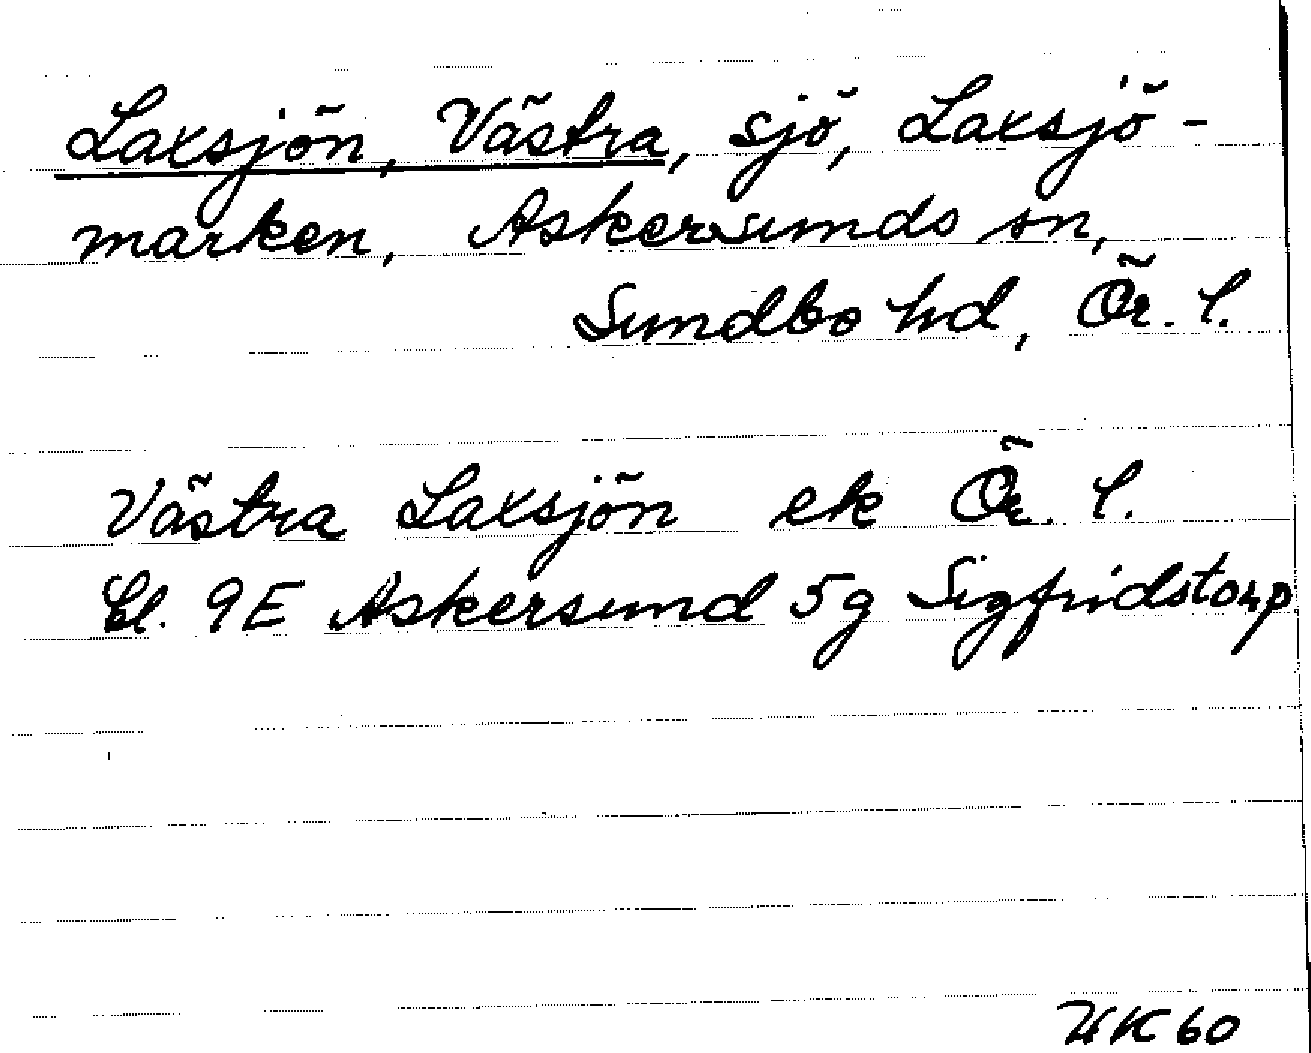 Laxsjön, Västra, sjö, Laxsjö-
marken, Askersunds sn,
Sundbo hd, Ör. l.
Västra Laxsjön ek Ör. l.
Bl. 9E Askersund 5g Sigfridstorp
UK 60